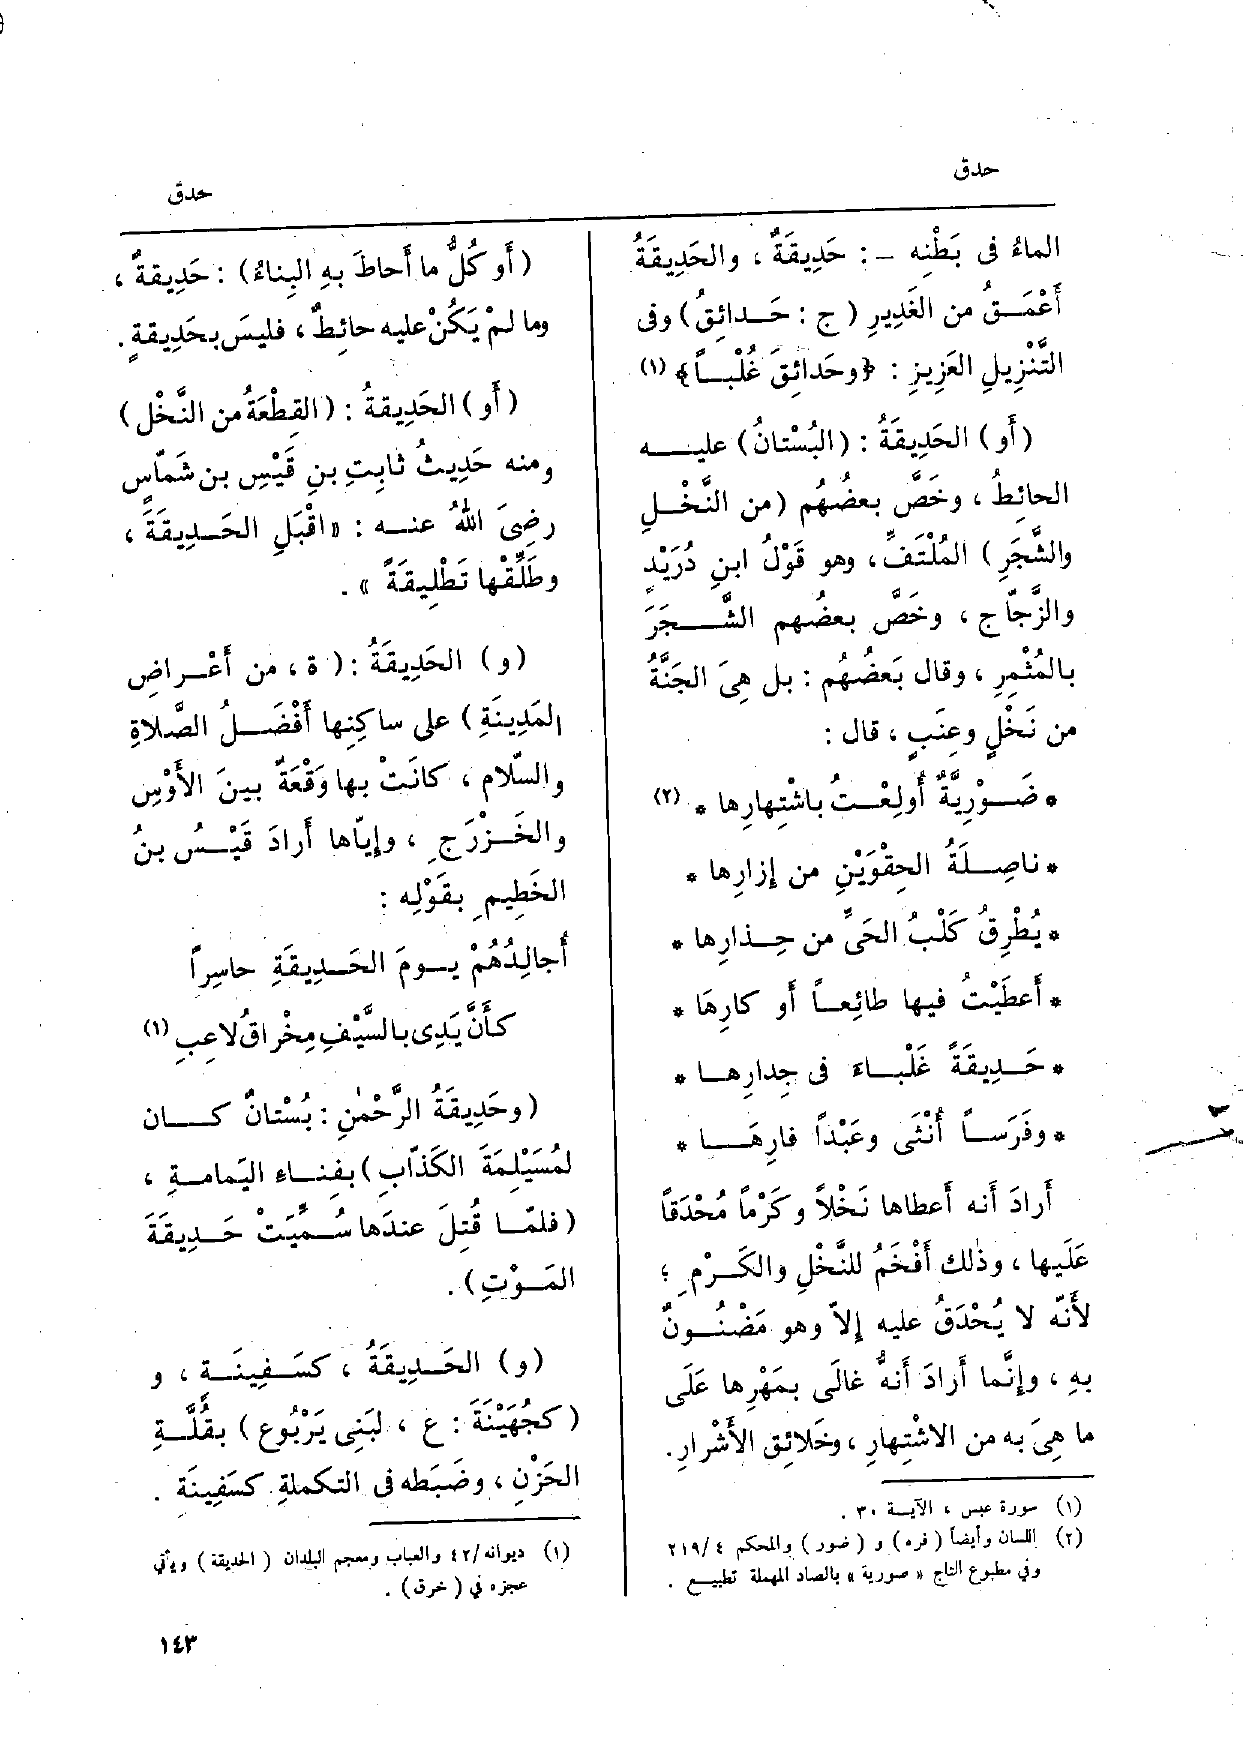 حدق
حدق
الماءُ فى بَطْنِه - : حَدِيقَةٌ ، والحَدِيقَةُ
أَعْمَـقُ من الغَدِيرِ ( ج : حَـدائِقُ) وفى
التَّنْزِيلِ العَزِيزِ : ﴿وحَدائِقَ غُلْبـاً﴾ (١)
(أَو) الحَدِيقَةُ : (البُسْتانُ) عليـــه
الحائطُ ، وخَصَّ بعضُهُم (من النَّخْـلِ
والشَّجَرِ ) المُلْتَفِّ ، وهو قَوْلُ ابنِ دُرَيْدٍ
والزَّجّاجِ ، وخَصَّ بعضُهم الشَّـــجَرَ
بالمُثْمِرِ ، وقال بَعضُهُم : بل هِىَ الجَنَّةُ
من نَخْلٍ وعِنَبٍ ، قال :
* ضَـورِيَّةٌ أُولِعْـتُ باشْتِهارِها * (٢)
* ناصِـلَةُ الحِقْوَيْنِ من إِزارِها *
* يُطْرِقُ كَلْبُ الحَىِّ من حِـذارِها *
* أَعطَيْتُ فيها طائِعـاً أَو كارِهَا *
* حَـدِيقَةً غَلْبـاءَ فى جِدارِهـا *
* وفَرَسـاً أُنْثَى وعَبْداً فارِهَـــا *
أَرادَ أَنه أَعطاها نَخْلاً وكَرْماً مُحْدَقاً
عَلَيها ، وذٰلك أَفْخَمُ للنَّخْلِ والكَـرْمِ ؛
لأَنّه لا يُحْدَقُ عليه إِلاّ وهو مَضْنُـونٌ
بهِ ، وإِنَّما أَرادَ أَنهُّ غالَى بمَهْرِها عَلَى
ما هِىَ به من الاشْتِهارِ ، وخَلائِقِ الأَشْرارِ.
(١) سورة عبس ، الآيـة ٣٠ .
(٢) اللسان وأيضاً ( فره ) و ( ضور ) والمحكم ٤ /٢١٩
وفي مطبوع التاج « صورية » بالصاد المهملة تطبيـع .
(أَو كُلُّ ما أَحاطَ بهِ البِناءُ) : حَدِيقةٌ ،
وما لم يَكُنْ عليه حائِطٌ ، فليسَ بحَدِيقةٍ .
(أَو) الحَدِيقةُ : (القِطْعَةُ من النَّخْلِ )
ومنه حَدِيثُ ثابِتِ بنِ قَيْسِ بن شَمّاسٍ
رضِىَ اللهُ عنـه : «اقْبَلِ الحَـدِيقَةَ ،
وطَلِّقْها تَطْلِيقَةً » .
(و) الحَدِيقَةُ : ( ة ، من أَعْـراضِ
المَدِينَةِ ) على ساكِنِها أَفْضَـلُ الصَّلاةِ
والسّلامِ ، كانَتْ بها وَقْعَةٌ بينَ الأَوْسِ
والخَـزْرَجِ ، وإِيّاها أَرادَ قَيْـسُ بنُ
الخَطِيمِ بقَوْلِه :
أُجالِدُهُمْ يـومَ الحَـدِيقَةِ حاسِراً
كأَنَّ يَدِى بالسَّيْفِ مِخْراقُ لاعِبِ (١)
(وحَدِيقَةُ الرَّحْمٰنِ : بُسْتانٌ كـــان
لمُسَيْلِمَةَ الكَذّابِ ) بفِنـاءِ اليَمامـةِ ،
(فلمّـا قُتِلَ عندَها سُـمِّيَتْ حَـدِيقَةَ
المَـوْتِ) .
(و) الحَـدِيقَةُ ، كسَـفِينَـة ، و
( كجُهَيْنَةَ : ع ، لبَنِى يَرْبُوعٍ ) بقُلَّـةِ
الحَزْنِ ، وضَبَطه فى التكملةِ كسَفِينَة .
(١) ديوانه /٤٢ والعباب ومعجم البلدان ( الحديقة ) ويأتي
عجزه في ( خرق ) .
١٤٣